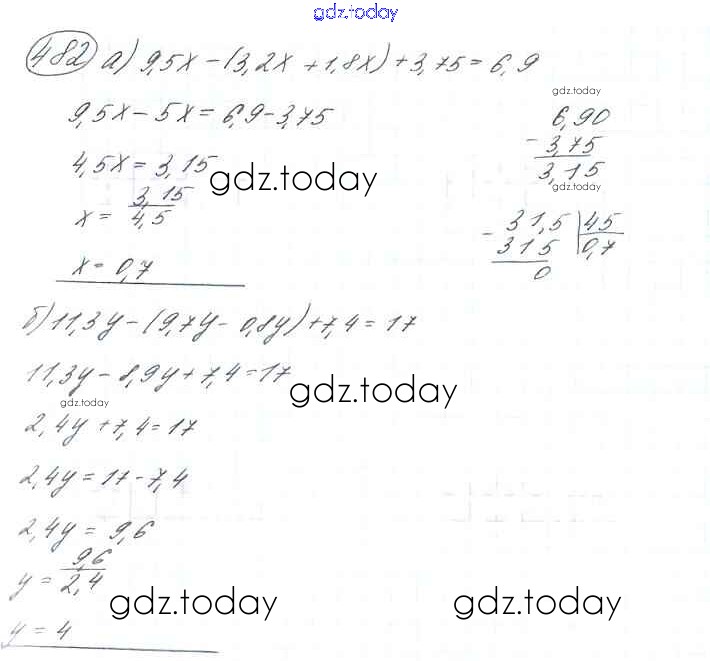 gdz.today
482 а) 9,5x - (3,2x + 1,8x) + 3,75 = 6,9
9,5x - 5x = 6,9 - 3,75
4,5x = 3,15
x = 3,15 / 4,5
x = 0,7
gdz.today
6,90
- 3,75
3,15
gdz.today
- 31,5 | 45
315 0,7
0
gdz.today
б) 11,3y - (9,7y - 0,8y) + 7,4 = 17
11,3y - 8,9y + 7,4 = 17
gdz.today
gdz.today
2,4y + 7,4 = 17
2,4y = 17 - 7,4
2,4y = 9,6
y = 9,6 / 2,4
y = 4
gdz.today
gdz.today